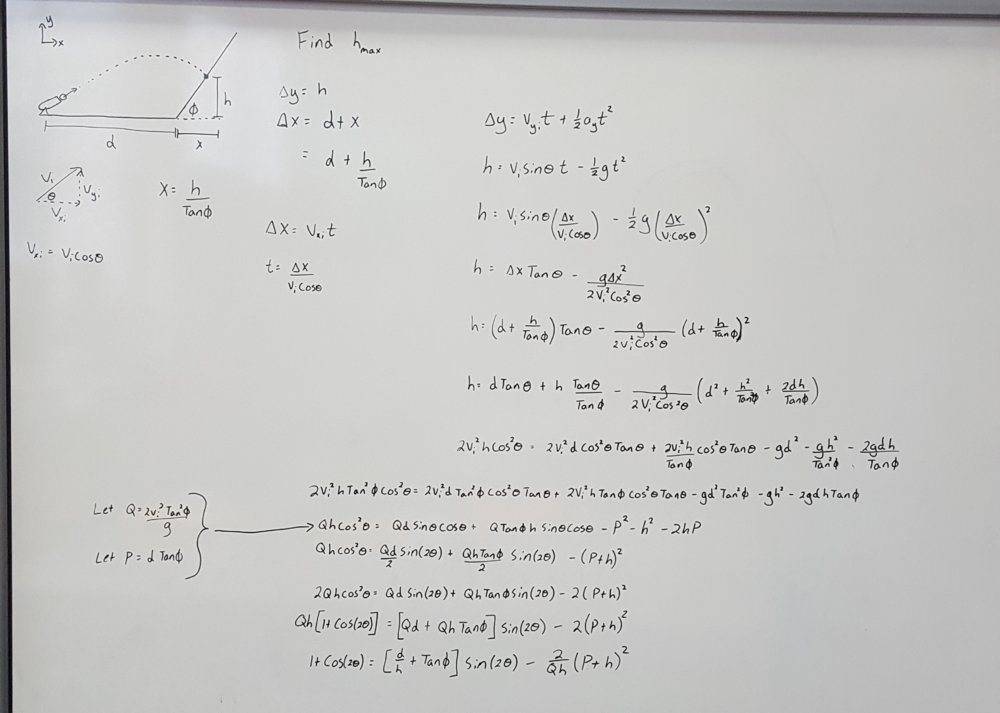 y
x
h
φ
d
x
Vᵢ
θ
V_yᵢ
V_xᵢ
V_xᵢ = Vᵢ Cosθ
X = h/Tanφ
Find h_max
Δy = h
Δx = d + x
= d + h/Tanφ
Δx = V_xᵢ t
t = Δx/(Vᵢ Cosθ)
Δy = V_yᵢ t + ½ a_y t²
h = Vᵢ sinθ t - ½ g t²
h = Vᵢ sinθ (Δx/(Vᵢ Cosθ)) - ½ g (Δx/(Vᵢ Cosθ))²
h = Δx Tanθ - gΔx²/(2Vᵢ² Cos²θ)
h = (d + h/Tanφ) Tanθ - g/(2Vᵢ² Cos²θ) (d + h/Tanφ)²
h = d Tanθ + h Tanθ/Tanφ - g/(2Vᵢ² Cos²θ) (d² + h²/Tan²φ + 2dh/Tanφ)
2Vᵢ² h Cos²θ = 2Vᵢ² d Cos²θ Tanθ + 2Vᵢ² h/Tanφ Cos²θ Tanθ - gd² - gh²/Tan²φ - 2gdh/Tanφ
2Vᵢ² h Tan²φ Cos²θ = 2Vᵢ² d Tan²φ Cos²θ Tanθ + 2Vᵢ² h Tanφ Cos²θ Tanθ - gd² Tan²φ - gh² - 2gdh Tanφ
Let Q = 2Vᵢ² Tan²φ/g
Let P = d Tanφ
Qh cos²θ = Qd Sinθ cosθ + Q Tanφ h sinθ cosθ - P² - h² - 2hP
Qh cos²θ = Qd/2 Sin(2θ) + Qh Tanφ/2 Sin(2θ) - (P+h)²
2Qh cos²θ = Qd Sin(2θ) + Qh Tanφ Sin(2θ) - 2(P+h)²
Qh[1+ Cos(2θ)] = [Qd + Qh Tanφ] Sin(2θ) - 2(P+h)²
1+ Cos(2θ) = [d/h + Tanφ] Sin(2θ) - 2/Qh (P+h)²